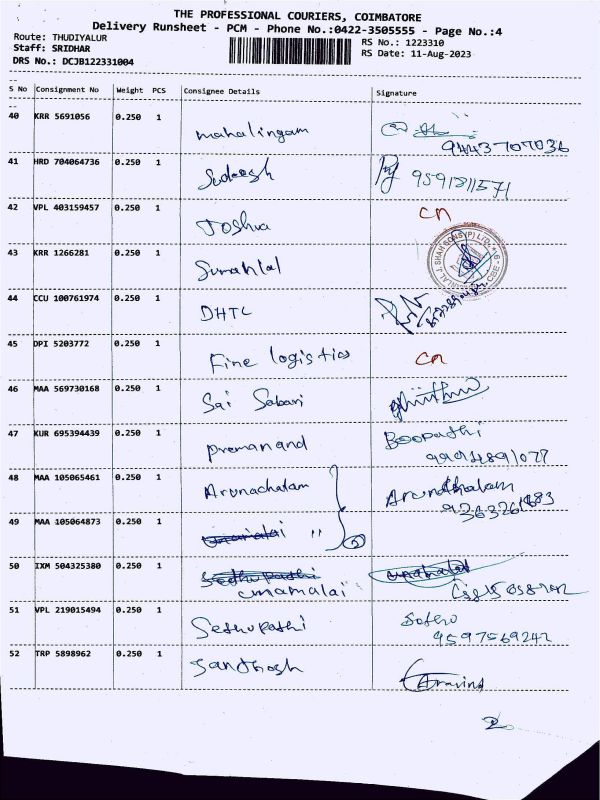 THE PROFESSIONAL COURIERS, COIMBATORE
Delivery Runsheet - PCM - Phone No.:0422-3505555 - Page No.:4
Route: THUDIYALUR
RS No.: 1223310
Staff: SRIDHAR
RS Date: 11-Aug-2023
DRS No.: DCJB122331004
S No Consignment No Weight PCS Consignee Details Signature
40 KRR 5691056 0.250 1 mahalingam
9443707036
41 HRD 704064736 0.250 1 Sudeesh 9591811571
42 VPL 403159457 0.250 1 Joshua
43 KRR 1266281 0.250 1
44 CCU 100761974 0.250 1 DHTC
45 DPI 5203772 0.250 1 Fine logistics
46 MAA 569730168 0.250 1 Sai Sabari
47 KUR 695394439 0.250 1 Premanand Boopathi
48 MAA 105065461 0.250 1 Arunachalam Arunachalam
49 MAA 105064873 0.250 1 "
50 IXM 504325380 0.250 1
51 VPL 219015494 0.250 1 Sethupathi
9597569242
52 TRP 5898962 0.250 1 Santhosh Aravind